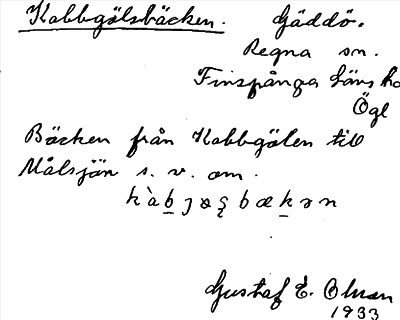 Kabbgölsbäcken. Gäddö.
Regna sn.
Finspånga läns hd
Ögl
Bäcken från Kabbgölen till
Målsjön s. v. om.
Gustaf E. Olman
1933